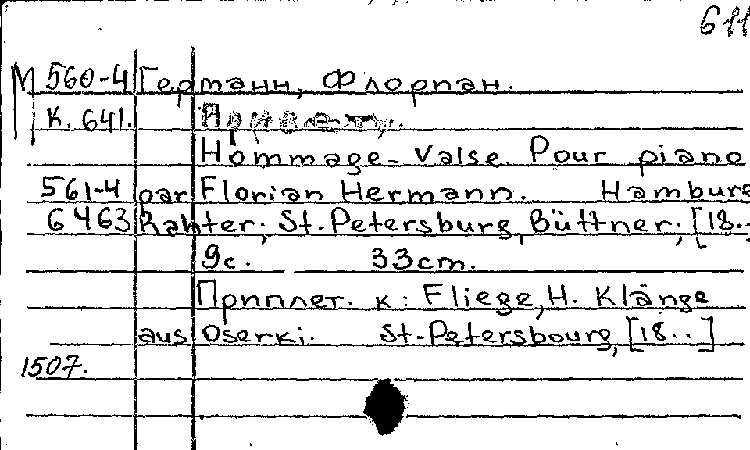 611
М 560-4 Германн, Флориан.
К. 641. Привет,
Hommage-Valse. Pour piano
561-4 par Florian Hermann. Hamburg
6463 Rahter; St.Petersburg, Büttner; [18..
9с. 33cm.
Приплет. к: Fliege, H. Klänge
aus Oserki. St-Petersbourg, [18..]
1507.